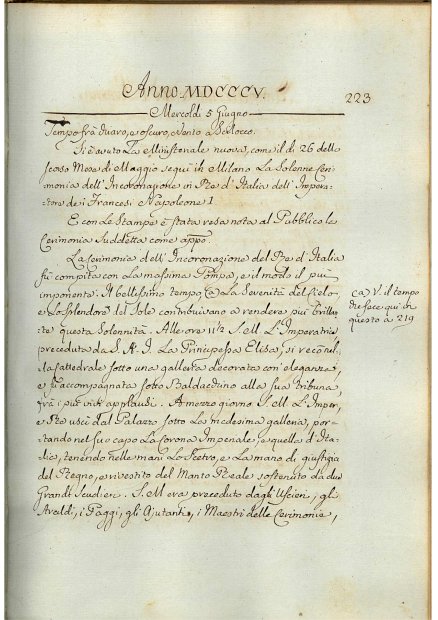 Anno MDCCCV.
223
Mercoldi 5 Giugno
Tempo frà duaro, e oscuro, vento a Scilocco.
Si è avuto La Ministeriale nuova, come il dì 26 dello
scorso Mese di Maggio seguì in Milano La Solenne Ceri=
monia dell' Incoronazione in Rè d' Italia dell' Impera=
tore de i Francesi Napoleone I.
E con Le Stampe è stata resa nota al Pubblico la
Cerimonia Suddetta come appo:
La Cerimonia dell' Incoronazione del Re d' Italia
fù compita con La massima Pompa, e il modo il più
imponente. Il bellissimo tempo (a) La Serenità del Cielo
e Lo Splendore del Sole contribuivano a rendere più brillan
te questa Solennità. Alle ore 11 1/2 S. M. L' Imperatrice
preceduta da S. A. I. La Principessa Elisa, si recò nel=
la Cattedrale sotto una galleria decorata con eleganza,
e fù accompagnata sotto Baldachino alla sua Tribuna
frà i più vivi applausi. A mezzo giorno S. M. L' Imper.
e Re uscì dal Palazzo sotto La medesima galleria, por=
tando nel suo capo La Corona Imperiale, e quella d' Ita=
lia, tenendo nelle mani Lo Scetro, e La mano di giustizia
del Regno, e rivestito del Manto Reale sostenuto da due
Grandi Scudieri. S. M. era preceduto dagli Uscieri, gli
Araldi, i Paggi, gli Ajutanti, i Maestri delle Cerimonie,
(a) V. il tempo
che fece qui in
questo a 219